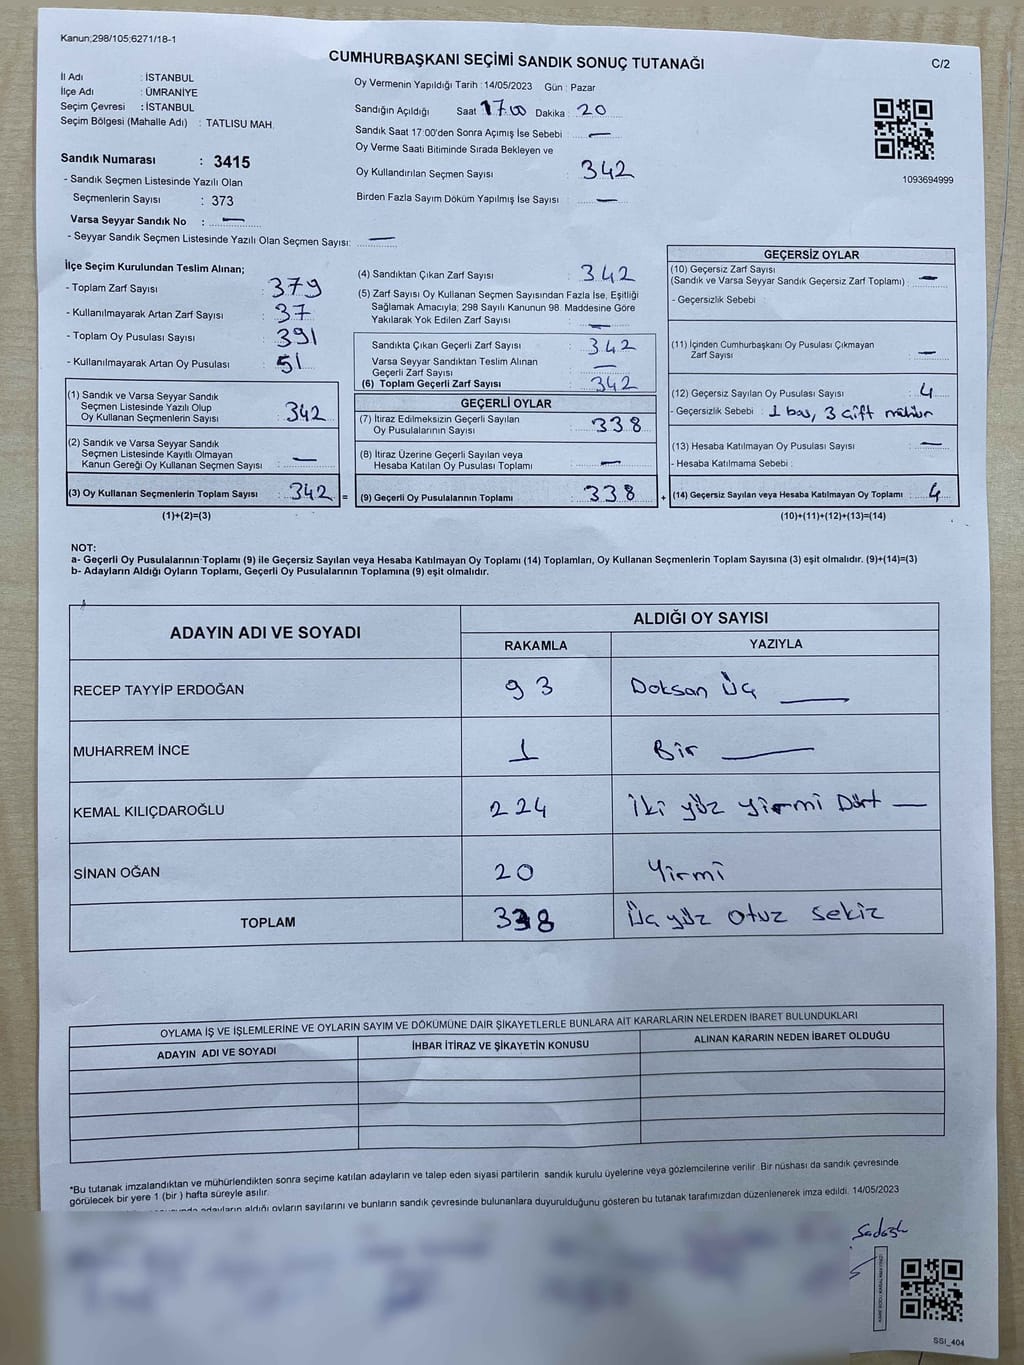 Kanun;298/105;6271/18-1
CUMHURBAŞKANI SEÇİMİ SANDIK SONUÇ TUTANAĞI
C/2
İl Adı : İSTANBUL
İlçe Adı : ÜMRANİYE
Seçim Çevresi : İSTANBUL
Seçim Bölgesi (Mahalle Adı) : TATLISU MAH.
Sandık Numarası : 3415
- Sandık Seçmen Listesinde Yazılı Olan
Seçmenlerin Sayısı : 373
Varsa Seyyar Sandık No : —
- Seyyar Sandık Seçmen Listesinde Yazılı Olan Seçmen Sayısı: —
Oy Vermenin Yapıldığı Tarih : 14/05/2023 Gün : Pazar
Sandığın Açıldığı Saat 17.00 Dakika : 20
Sandık Saat 17:00'den Sonra Açımış İse Sebebi : —
Oy Verme Saati Bitiminde Sırada Bekleyen ve
Oy Kullandırılan Seçmen Sayısı : 342
Birden Fazla Sayım Döküm Yapılmış İse Sayısı : —
1093694999
İlçe Seçim Kurulundan Teslim Alınan;
- Toplam Zarf Sayısı : 379
- Kullanılmayarak Artan Zarf Sayısı : 37
- Toplam Oy Pusulası Sayısı : 391
- Kullanılmayarak Artan Oy Pusulası : 51
(1) Sandık ve Varsa Seyyar Sandık
Seçmen Listesinde Yazılı Olup
Oy Kullanan Seçmenlerin Sayısı : 342
(2) Sandık ve Varsa Seyyar Sandık
Seçmen Listesinde Kayıtlı Olmayan
Kanun Gereği Oy Kullanan Seçmen Sayısı : —
(3) Oy Kullanan Seçmenlerin Toplam Sayısı : 342 =
(1)+(2)=(3)
(4) Sandıktan Çıkan Zarf Sayısı : 342
(5) Zarf Sayısı Oy Kullanan Seçmen Sayısından Fazla İse, Eşitliği
Sağlamak Amacıyla; 298 Sayılı Kanunun 98. Maddesine Göre
Yakılarak Yok Edilen Zarf Sayısı : —
Sandıkta Çıkan Geçerli Zarf Sayısı : 342
Varsa Seyyar Sandıktan Teslim Alınan
Geçerli Zarf Sayısı : —
(6) Toplam Geçerli Zarf Sayısı : 342
GEÇERLİ OYLAR
(7) İtiraz Edilmeksizin Geçerli Sayılan
Oy Pusulalarının Sayısı : 338
(8) İtiraz Üzerine Geçerli Sayılan veya
Hesaba Katılan Oy Pusulası Toplamı : —
(9) Geçerli Oy Pusulalarının Toplamı : 338 +
GEÇERSİZ OYLAR
(10) Geçersiz Zarf Sayısı
(Sandık ve Varsa Seyyar Sandık Geçersiz Zarf Toplamı) : —
- Geçersizlik Sebebi :
(11) İçinden Cumhurbaşkanı Oy Pusulası Çıkmayan
Zarf Sayısı : —
(12) Geçersiz Sayılan Oy Pusulası Sayısı : 4
- Geçersizlik Sebebi : 1 boş, 3 çift mühür
(13) Hesaba Katılmayan Oy Pusulası Sayısı : —
- Hesaba Katılmama Sebebi :
(14) Geçersiz Sayılan veya Hesaba Katılmayan Oy Toplamı : 4
(10)+(11)+(12)+(13)=(14)
NOT:
a- Geçerli Oy Pusulalarının Toplamı (9) ile Geçersiz Sayılan veya Hesaba Katılmayan Oy Toplamı (14) Toplamları, Oy Kullanan Seçmenlerin Toplam Sayısına (3) eşit olmalıdır. (9)+(14)=(3)
b- Adayların Aldığı Oyların Toplamı, Geçerli Oy Pusulalarının Toplamına (9) eşit olmalıdır.
ADAYIN ADI VE SOYADI
ALDIĞI OY SAYISI
RAKAMLA YAZIYLA
RECEP TAYYİP ERDOĞAN 93 Doksan Üç —
MUHARREM İNCE 1 Bir —
KEMAL KILIÇDAROĞLU 224 İki yüz yirmi Dört —
SİNAN OĞAN 20 Yirmi
TOPLAM 338 Üç yüz otuz sekiz
OYLAMA İŞ VE İŞLEMLERİNE VE OYLARIN SAYIM VE DÖKÜMÜNE DAİR ŞİKAYETLERLE BUNLARA AİT KARARLARIN NELERDEN İBARET BULUNDUKLARI
ADAYIN ADI VE SOYADI İHBAR İTİRAZ VE ŞİKAYETİN KONUSU ALINAN KARARIN NEDEN İBARET OLDUĞU
*Bu tutanak imzalandıktan ve mühürlendikten sonra seçime katılan adayların ve talep eden siyasi partilerin sandık kurulu üyelerine veya gözlemcilerine verilir. Bir nüshası da sandık çevresinde
görülecek bir yere 1 (bir ) hafta süreyle asılır.
adayların aldığı oyların sayılarını ve bunların sandık çevresinde bulunanlara duyurulduğunu gösteren bu tutanak tarafımızdan düzenlenerek imza edildi. 14/05/2023
SSİ_404